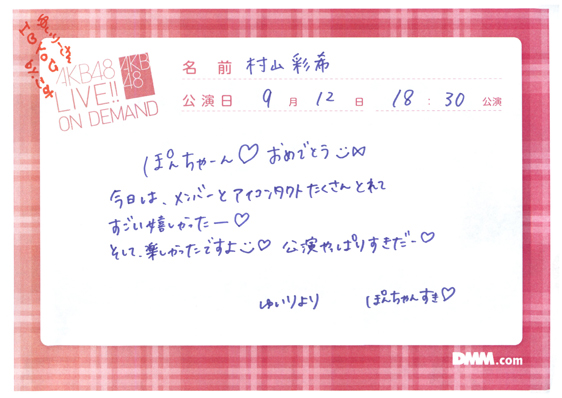 ゆいりーしぬ
I♡YOU
by.こみ
AKB48
LIVE!!
ON DEMAND
AKB
48
名前 村山彩希
公演日 9月12日 18:30公演
ぽんちゃーん♡ おめでとう
今日は、メンバーとアイコンタクトたくさんとれて
すごい嬉しかったー♡
そして、楽しかったですよ♡ 公演やっぱりすきだー♡
ゆいりより ぽんちゃんすき♡
DMM.com